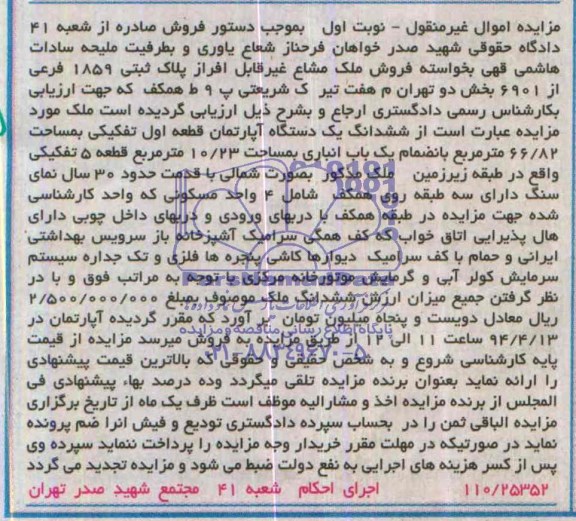 مزایده اموال غیرمنقول - نوبت اول   بموجب دستور فروش صادره از شعبه ۴۱
دادگاه حقوقی شهید صدر خواهان فرحناز شعاع یاوری و بطرفیت ملیحه سادات
هاشمی قهی بخواسته فروش ملک مشاع غیرقابل افراز پلاک ثبتی ۱۸۵۹ فرعی
از ۶۹۰۱ بخش دو تهران م هفت تیر ک شریعتی پ ۹ ط همکف که جهت ارزیابی
بکارشناس رسمی دادگستری ارجاع و بشرح ذیل ارزیابی گردیده است ملک مورد
مزایده عبارت است از ششدانگ یک دستگاه آپارتمان قطعه اول تفکیکی بمساحت
۶۶/۸۲ مترمربع بانضمام یک باب انباری بمساحت ۱۰/۲۳ مترمربع قطعه ۵ تفکیکی
واقع در طبقه زیرزمین   ملک مذکور بصورت شمالی با قدمت حدود ۳۰ سال نمای
سنگ دارای سه طبقه روی همکف شامل ۴ واحد مسکونی که واحد کارشناسی
شده جهت مزایده در طبقه همکف با دربهای ورودی و دربهای داخل چوبی دارای
هال پذیرایی اتاق خواب که کف همگی سرامیک آشپزخانه باز سرویس بهداشتی
ایرانی و حمام با کف سرامیک دیوارها کاشی پنجره ها فلزی و تک جداره سیستم
سرمایش کولر آبی و گرمایش موتورخانه مرکزی با توجه به مراتب فوق و با در
نظر گرفتن جمیع میزان ارزش ششدانگ ملک موصوف بمبلغ ۲/۵۰۰/۰۰۰/۰۰۰
ریال معادل دویست و پنجاه میلیون تومان بر آورد که مقرر گردیده آپارتمان در
۹۴/۴/۱۳ ساعت ۱۱ الی ۱۲ از طریق مزایده به فروش میرسد مزایده از قیمت
پایه کارشناسی شروع و به شخص حقیقی و حقوقی که بالاترین قیمت پیشنهادی
را ارائه نماید بعنوان برنده مزایده تلقی میگردد وده درصد بهاء پیشنهادی فی
المجلس از برنده مزایده اخذ و مشارالیه موظف است ظرف یک ماه از تاریخ برگزاری
مزایده الباقی ثمن را در بحساب سپرده دادگستری تودیع و فیش انرا ضم پرونده
نماید در صورتیکه در مهلت مقرر خریدار وجه مزایده را پرداخت ننماید سپرده وی
پس از کسر هزینه های اجرایی به نفع دولت ضبط می شود و مزایده تجدید می گردد
۱۱۰/۲۵۳۵۲   اجرای احکام شعبه ۴۱ مجتمع شهید صدر تهران
پایگاه اطلاع رسانی مناقصه و مزایده
۰۲۱-۸۸۳۴۹۶۷۰-۵